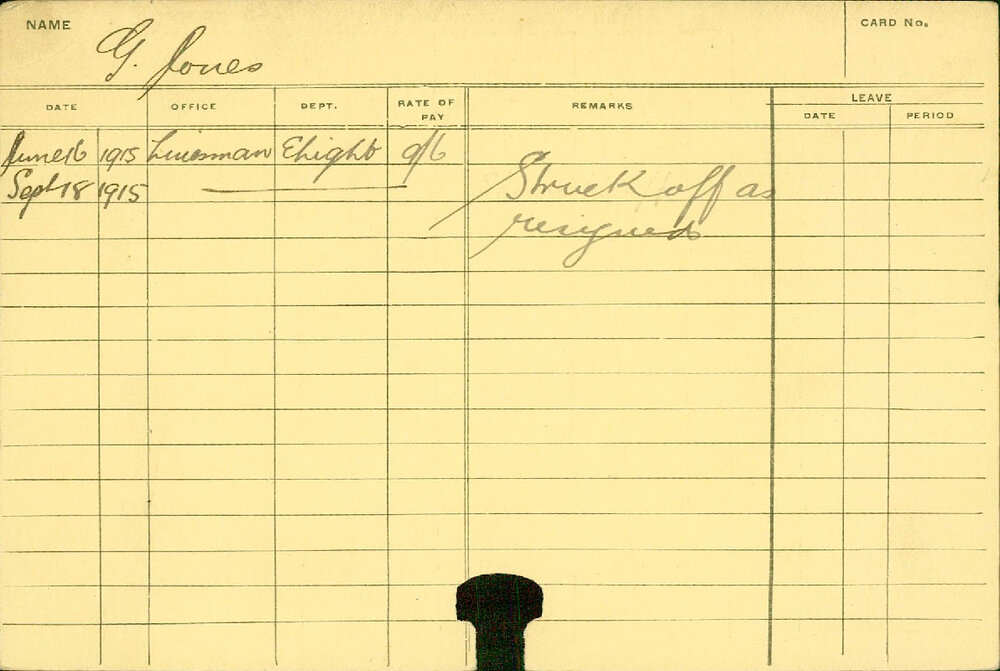 NAME G. Jones CARD No.
DATE OFFICE DEPT. RATE OF PAY REMARKS LEAVE
DATE PERIOD
June 16 1915 Linesman Elight 9/6 Struck off as
Sept 18 1915 resigned